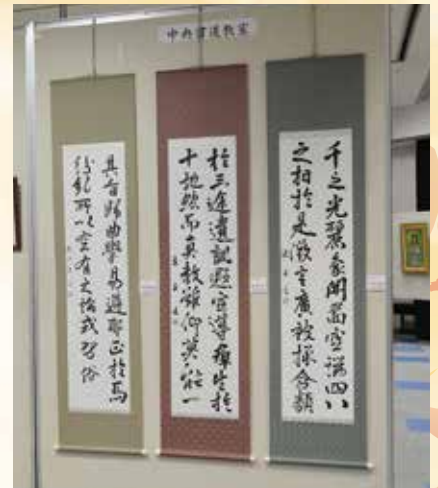 中央書道教室
千之光麗象開圖空端四八
之相於是微言廣被拯含類
於三途遺訓遐宣導群生於
十地然而真教難仰莫能一
其旨歸曲學易遵邪正於焉
紛糾所以空有之論或習俗